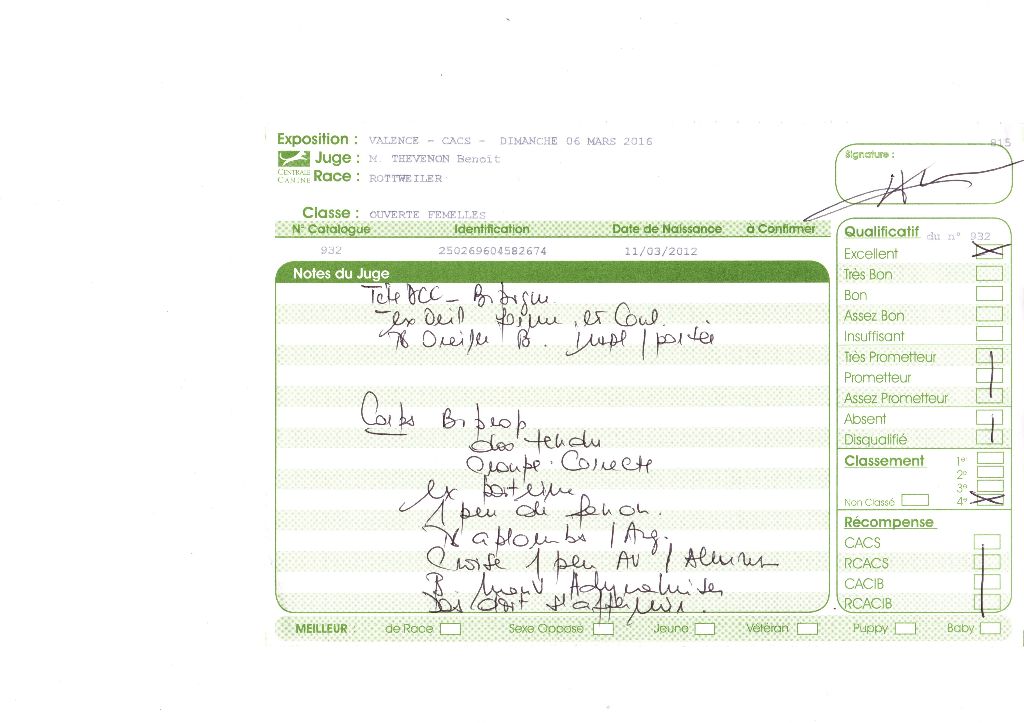 815
Exposition : VALENCE - CACS - DIMANCHE 06 MARS 2016
Juge : M. THEVENON Benoit
CENTRALE CANINE
Race : ROTTWEILER
Signature :
Classe : OUVERTE FEMELLES
N° Catalogue Identification Date de Naissance à Confirmer
932 250269604582674 11/03/2012
Notes du Juge
Tete
ex Oeil forme et Coul.
TB Oreille B. portée
Corps B prop
dos tendu
Croupe Correcte
ex poitrine
1 peu de fanon.
TB aplombs / Ang.
Croise 1 peu AV / Allures
B. mouv
Dos doit s'affermir.
Qualificatif du n° 932
Excellent
Très Bon
Bon
Assez Bon
Insuffisant
Très Prometteur
Prometteur
Assez Prometteur
Absent
Disqualifié
Classement 1e
2e
3e
Non Classé 4e
Récompense
CACS
RCACS
CACIB
RCACIB
MEILLEUR : de Race Sexe Opposé Jeune Vétéran Puppy Baby